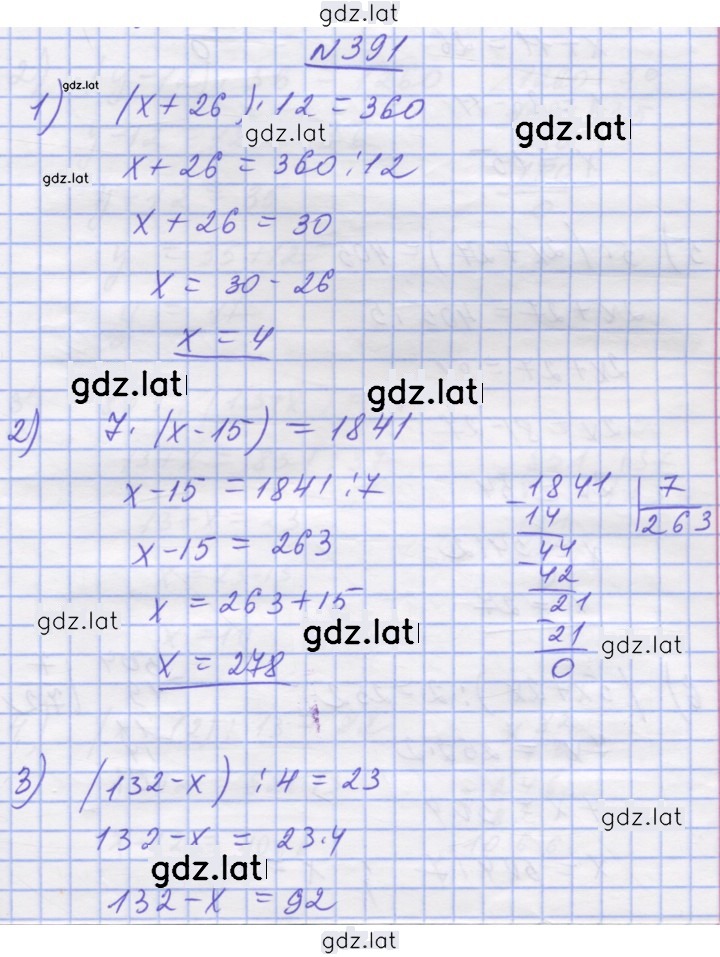 gdz.lat
№391
gdz.lat
1) (x + 26) · 12 = 360
gdz.lat gdz.lat
x + 26 = 360 : 12
gdz.lat
x + 26 = 30
x = 30 - 26
x = 4
gdz.lat gdz.lat
2) 7 · (x - 15) = 1841
x - 15 = 1841 : 7
x - 15 = 263
x = 263 + 15
x = 278
1841 | 7
- 14 | 263
44
- 42
21
- 21
0
gdz.lat gdz.lat gdz.lat
3) (132 - x) : 4 = 23
gdz.lat
132 - x = 23 · 4
gdz.lat
132 - x = 92
gdz.lat